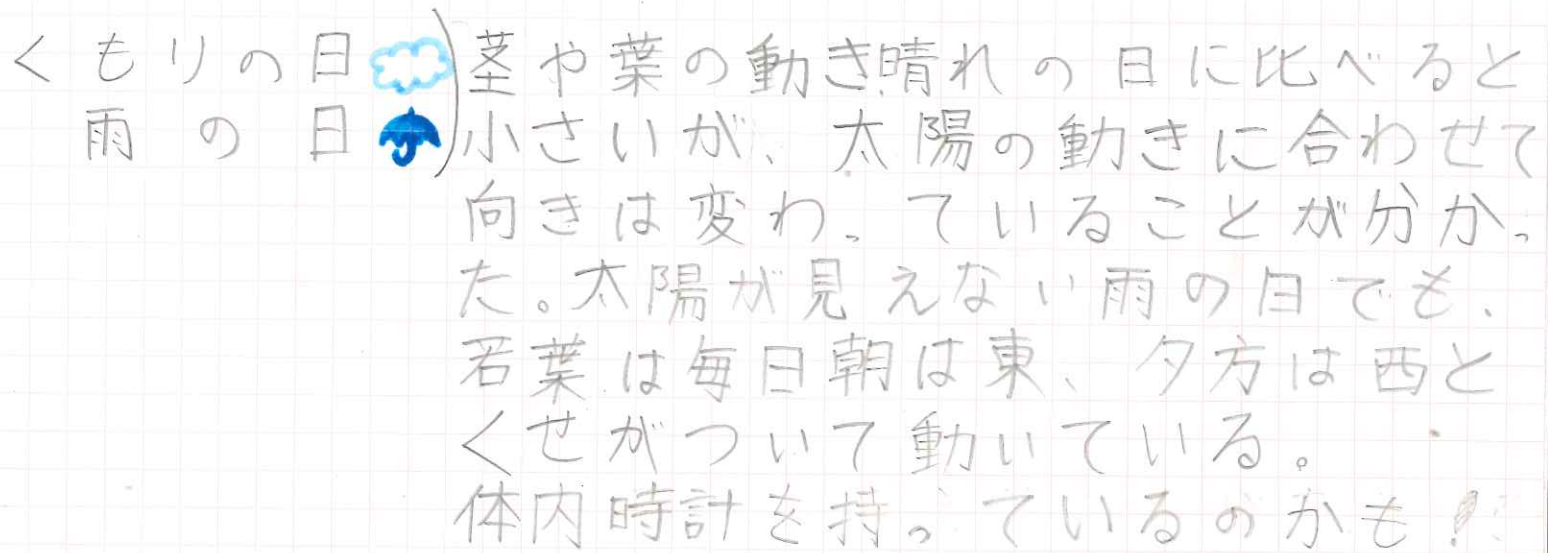 くもりの日
雨の日
茎や葉の動き晴れの日に比べると
小さいが、太陽の動きに合わせて
向きは変わっていることが分かっ
た。太陽が見えない雨の日でも、
若葉は毎日朝は東、夕方は西と
くせがついて動いている。
体内時計を持っているのかも!